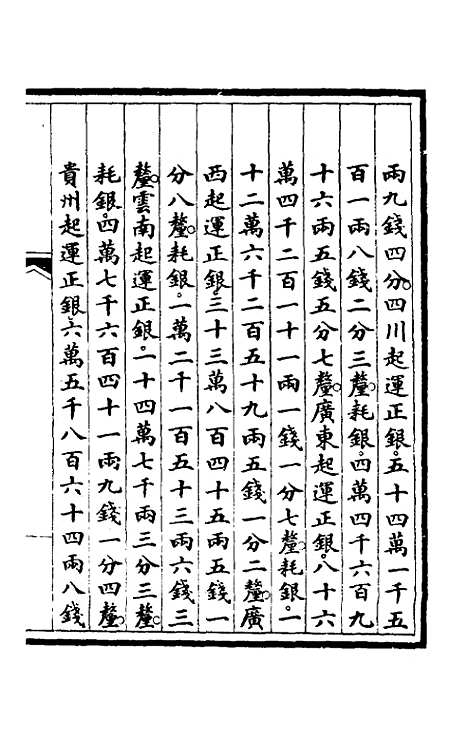 兩九錢四分。四川起運正銀。五十四萬一千五
百一兩八錢二分三釐。耗銀。四萬四千六百九
十六兩五錢五分七釐。廣東起運正銀。八十六
萬四千二百一十一兩一錢一分七釐。耗銀。一
十二萬六千二百五十九兩五錢一分二釐。廣
西起運正銀。三十三萬八百四十五兩五錢一
分八釐。耗銀。一萬二千一百五十三兩六錢三
釐。雲南起運正銀。一十四萬七千兩三分三釐。
耗銀。四萬七千六百四十一兩九錢一分四釐。
貴州起運正銀。六萬五千八百六十四兩八錢